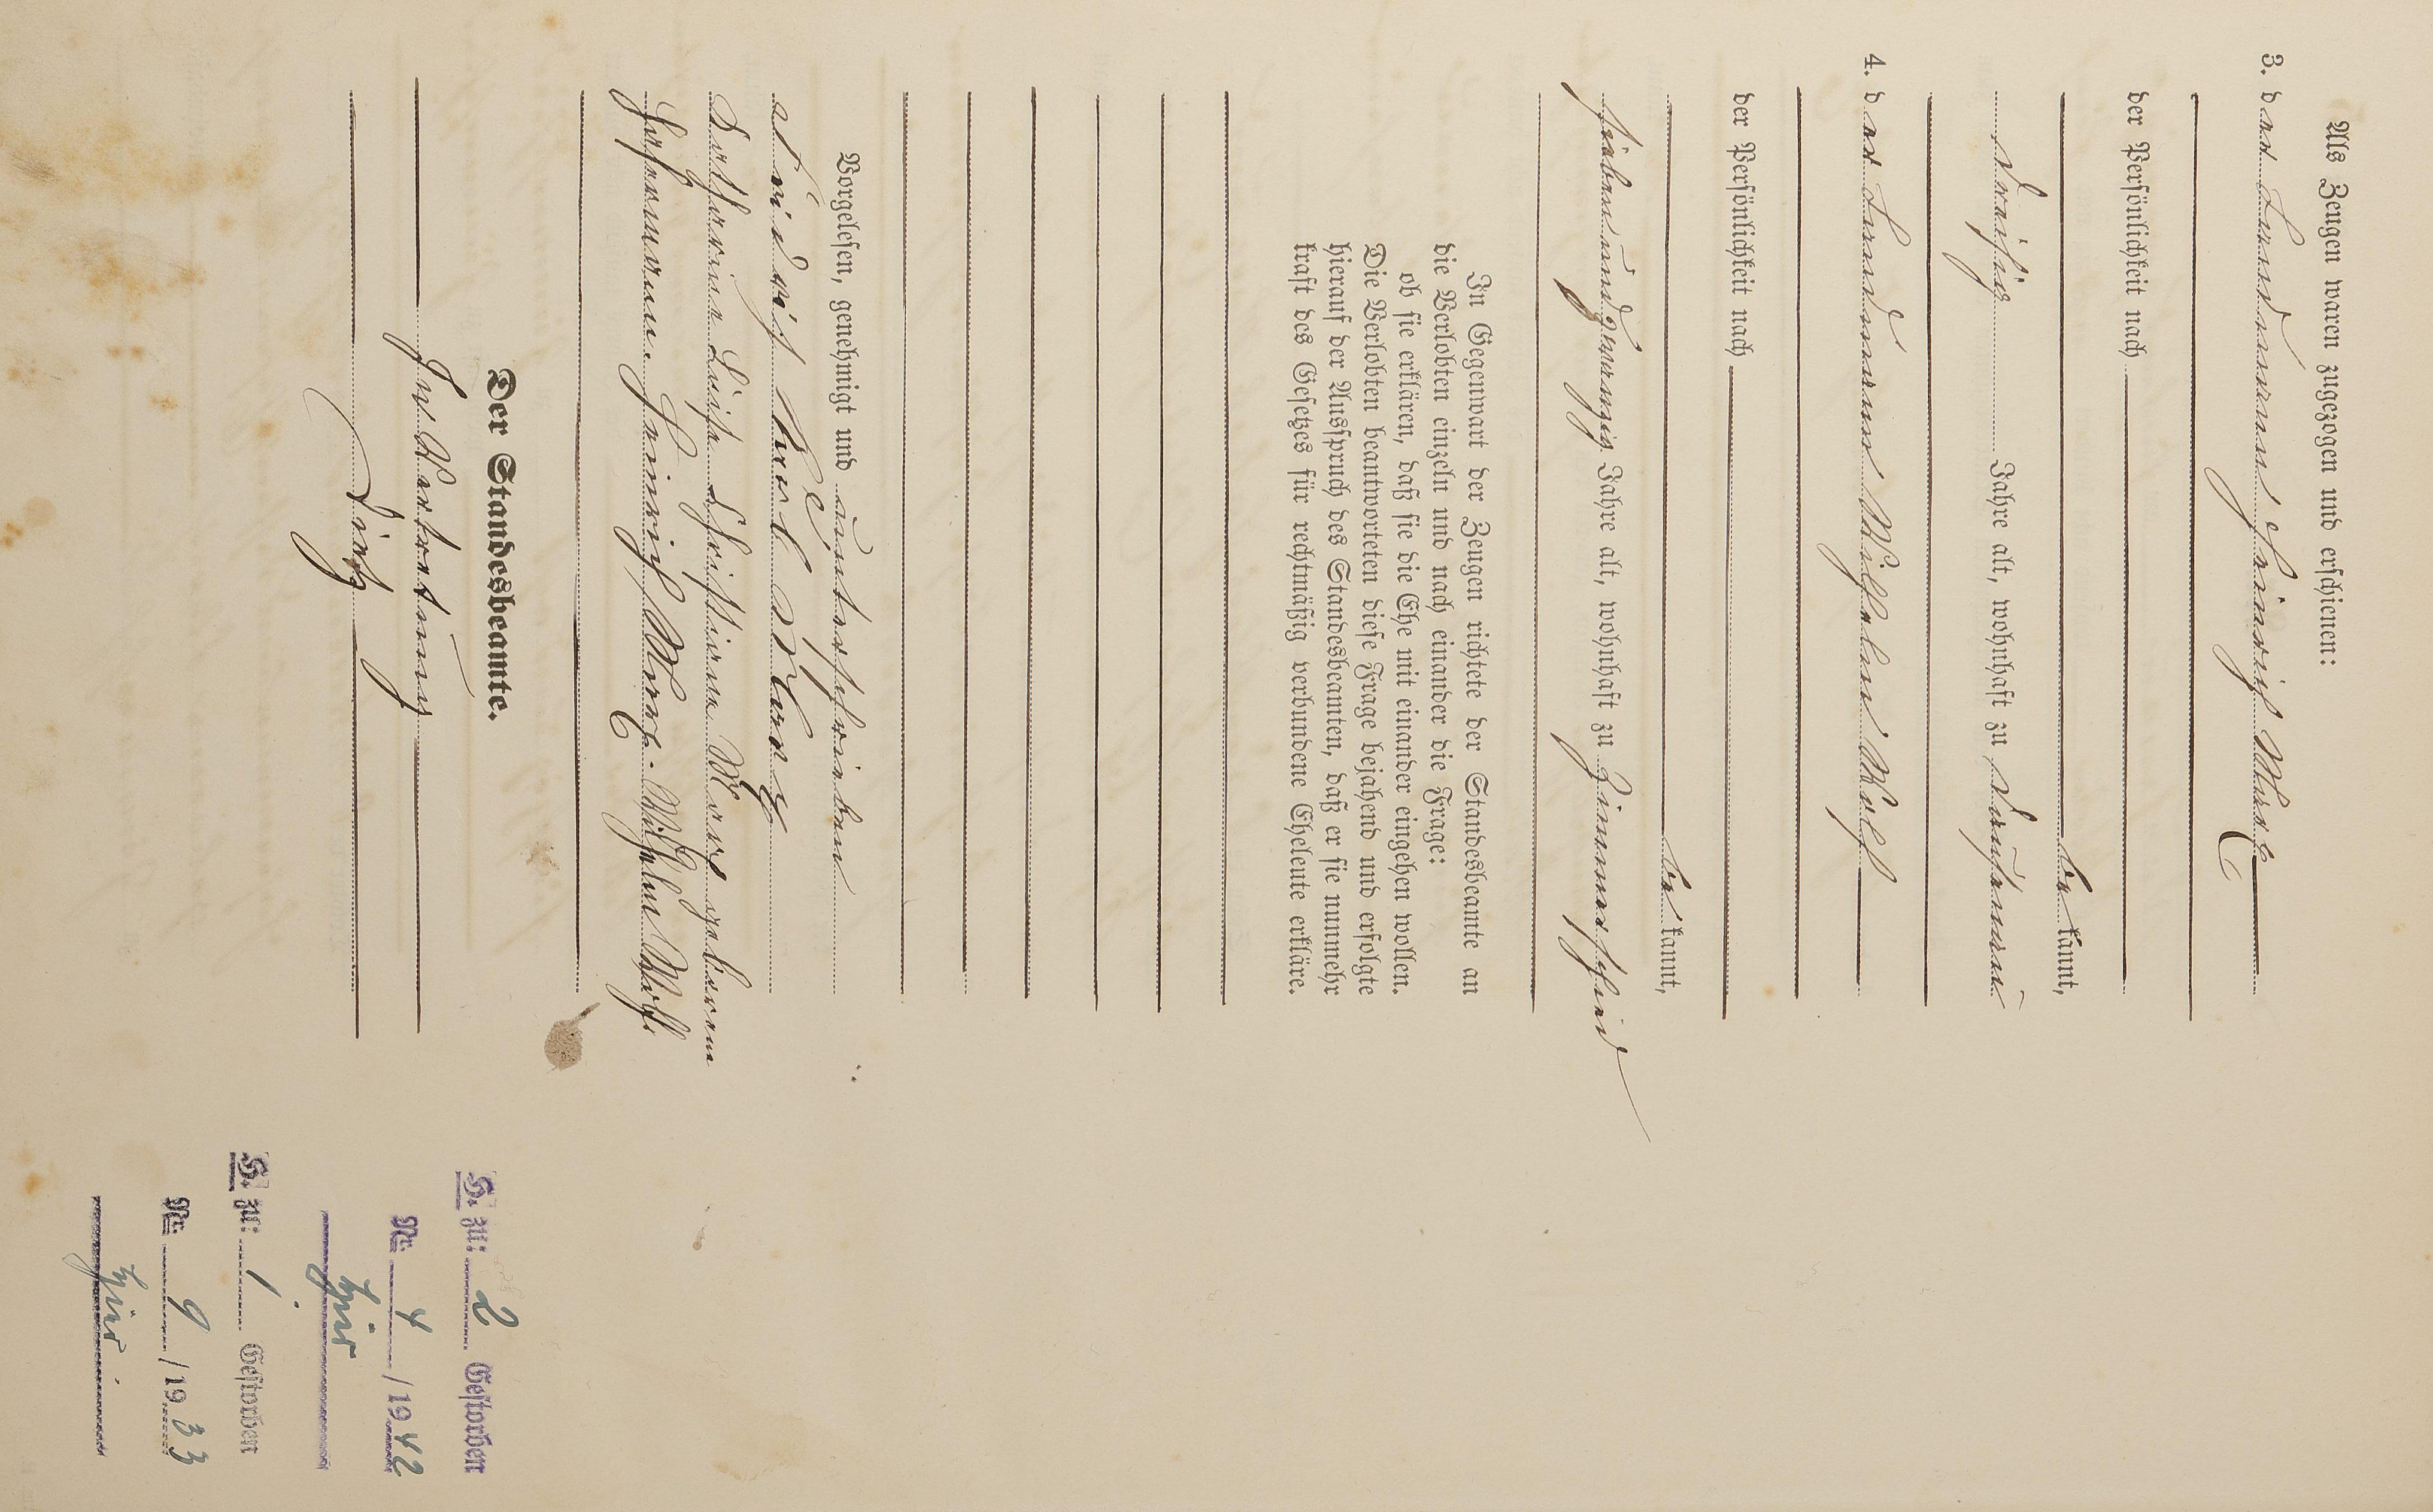 Als Zeugen waren zugezogen und erschienen:
3. der Landmann Heinrich
der Persönlichkeit nach
bekannt,
dreißig Jahre alt, wohnhaft zu
4. der Landmann Wilhelm Wolf
der Persönlichkeit nach
bekannt,
siebenundzwanzig Jahre alt, wohnhaft zu
In Gegenwart der Zeugen richtete der Standesbeamte an
die Verlobten einzeln und nach einander die Frage:
ob sie erklären, daß sie die Ehe mit einander eingehen wollen.
Die Verlobten beantworteten diese Frage bejahend und erfolgte
hierauf der Ausspruch des Standesbeamten, daß er sie nunmehr
kraft des Gesetzes für rechtmäßig verbundene Eheleute erkläre.
Vorgelesen, genehmigt und unterschrieben
Karl
Katharine Luise Christiane geborene
Heinrich Wilhelm Wolf.
Der Standesbeamte.
In Vertretung
H. zu: 2 Gestorben
Nr. 4 /1942
hier
H. zu: 1. Gestorben
Nr. 9 /1933
hier